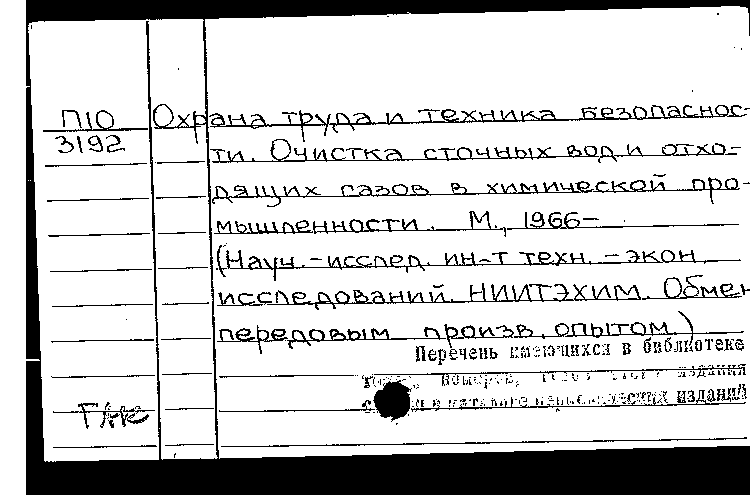 П10
3192
Охрана труда и техника безопаснос-
ти. Очистка сточных вод и отхо-
дящих газов в химической про-
мышленности. М., 1966-
(Науч.-исслед. ин-т техн.-экон.
исследований НИИТЭХИМ. Обмен
передовым произв. опытом.)
Перечень имеющихся в библиотеке
номеров, издания
в каталоге периодических изданий